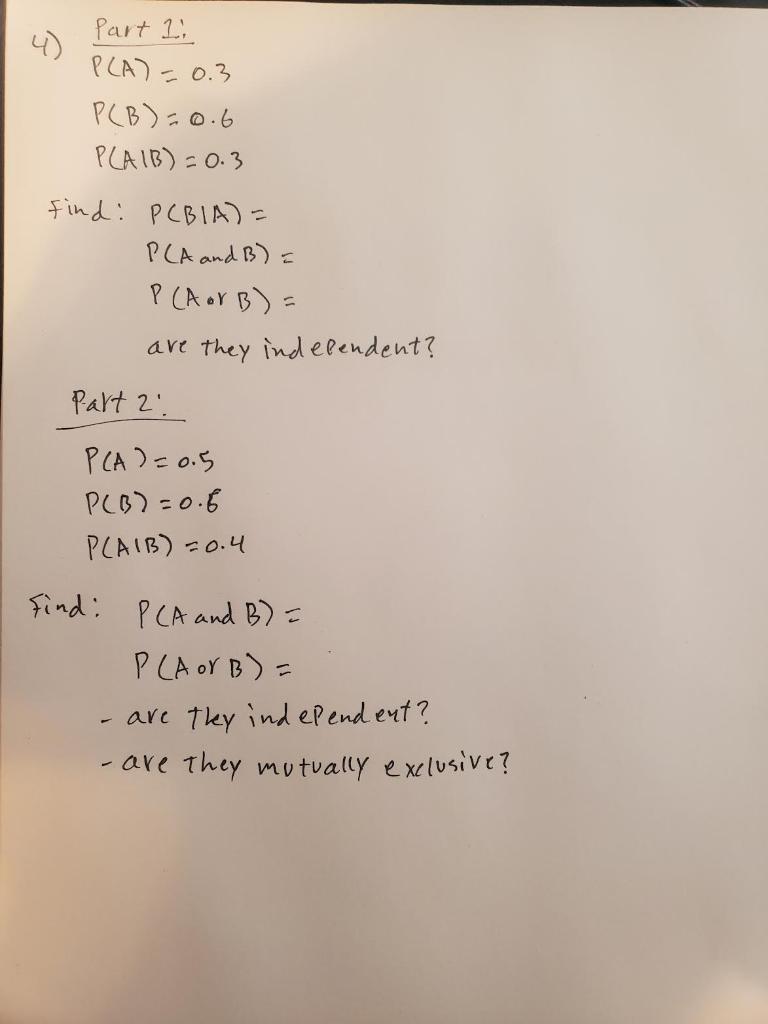 4) Part 1:
P(A) = 0.3
P(B) = 0.6
P(A|B) = 0.3
Find: P(B|A) =
P(A and B) =
P(A or B) =
are they independent?
Part 2:
P(A) = 0.5
P(B) =
P(A|B) = 0.4
Find: P(A and B) =
P(A or B) =
- are they independent?
- are they mutually exclusive?